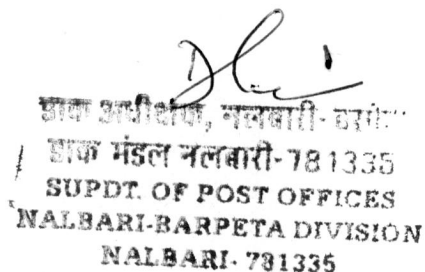 डाक अधीक्षक, नलबारी-
डाक मंडल नलबारी-781335
SUPDT. OF POST OFFICES
NALBARI-BARPETA DIVISION
NALBARI- 781335